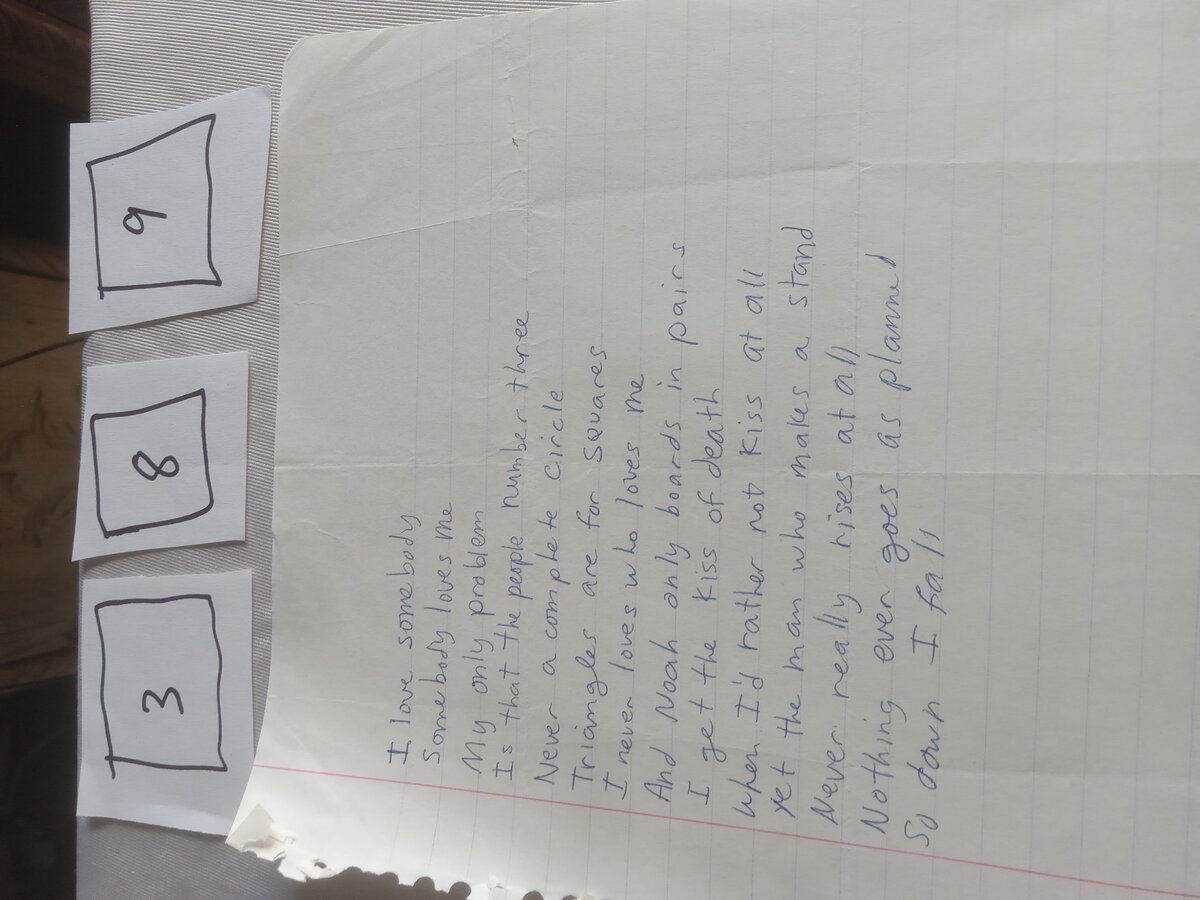 3 8 9
I love somebody
Somebody loves me
My only problem
Is that the people number three
Never a complete circle
Triangles are for squares
I never loves who loves me
And Noah only boards in pairs
I get the kiss of death
When I'd rather not kiss at all
Yet the man who makes a stand
Never really rises at all
Nothing ever goes as planned
So down I fall